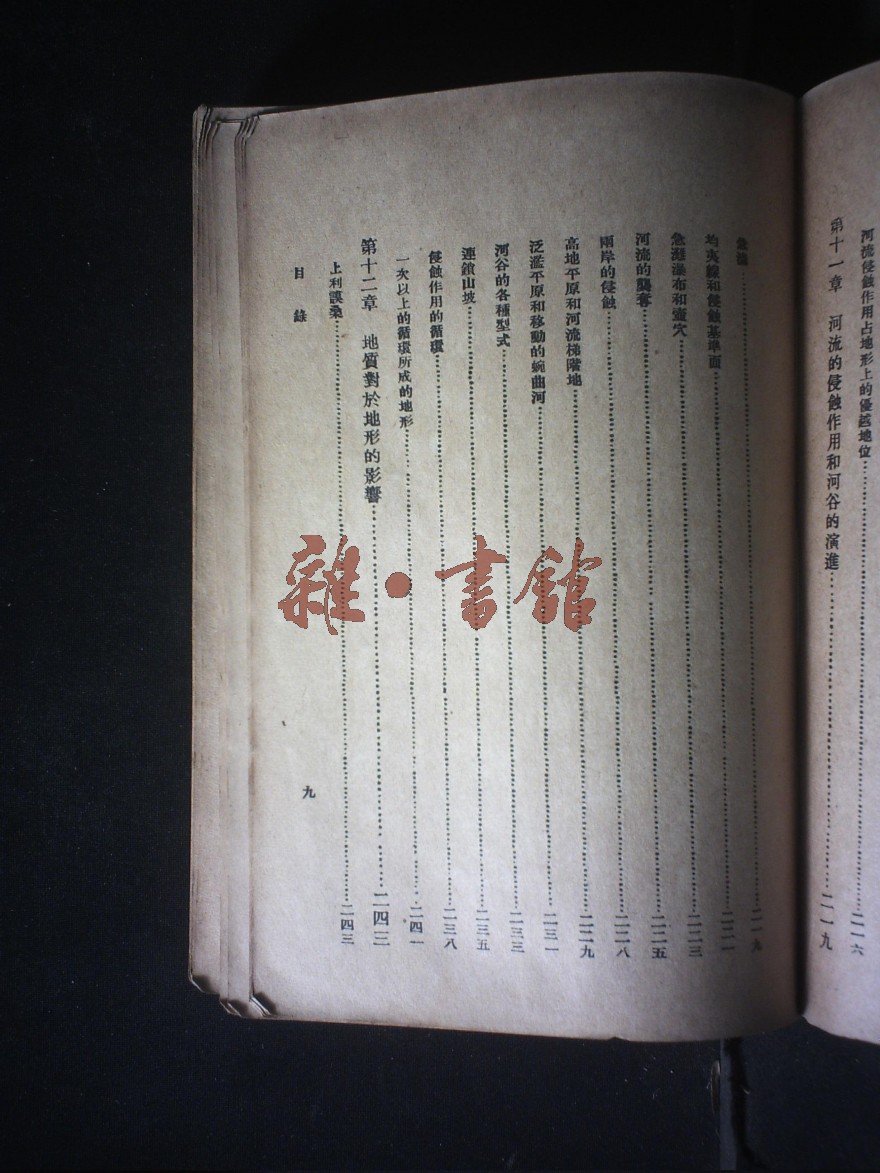 河流侵蝕作用占地形上的優越地位……二一六
第十一章 河流的侵蝕作用和河谷的演進……二一九
急流……二一九
均夷線和侵蝕基準面……二二一
急灘瀑布和壺穴……二二三
河流的襲奪……二二五
兩岸的侵蝕……二二八
高地平原和河流梯階地……二二九
泛濫平原和移動的蜿曲河……二三一
河谷的各種型式……二三三
連鎖山坡……二三五
侵蝕作用的循環……二三八
一次以上的循環所成的地形……二四一
第十二章 地質對於地形的影響……二四三
上利謨桑……二四三
目錄
九
雜·書館